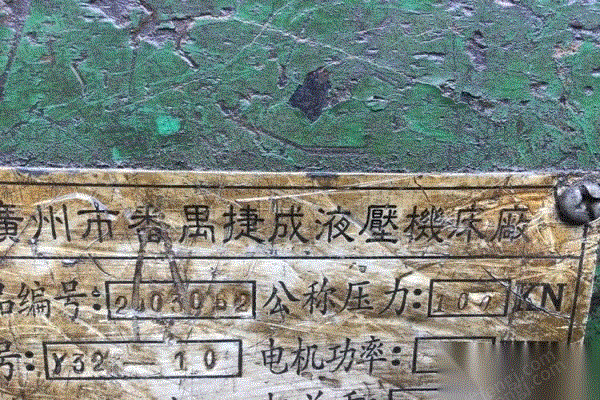 廣州市番禺捷成液壓機床廠
品编号: 2003062 公称压力: 100 KN
号: Y32-10 电机功率: